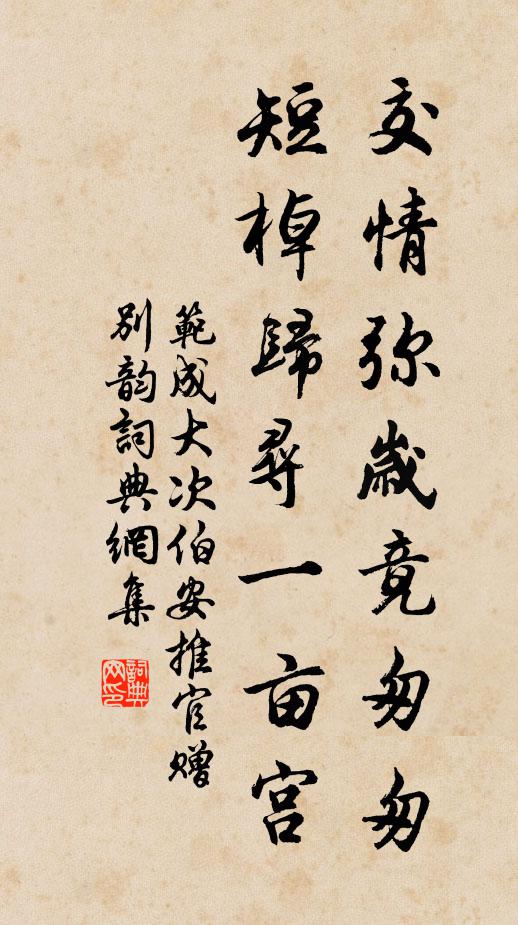 交情弥歲竟匆匆
短棹歸尋一亩宫
範成大次伯安推官赠
别韵詞典網集
詞典
网印